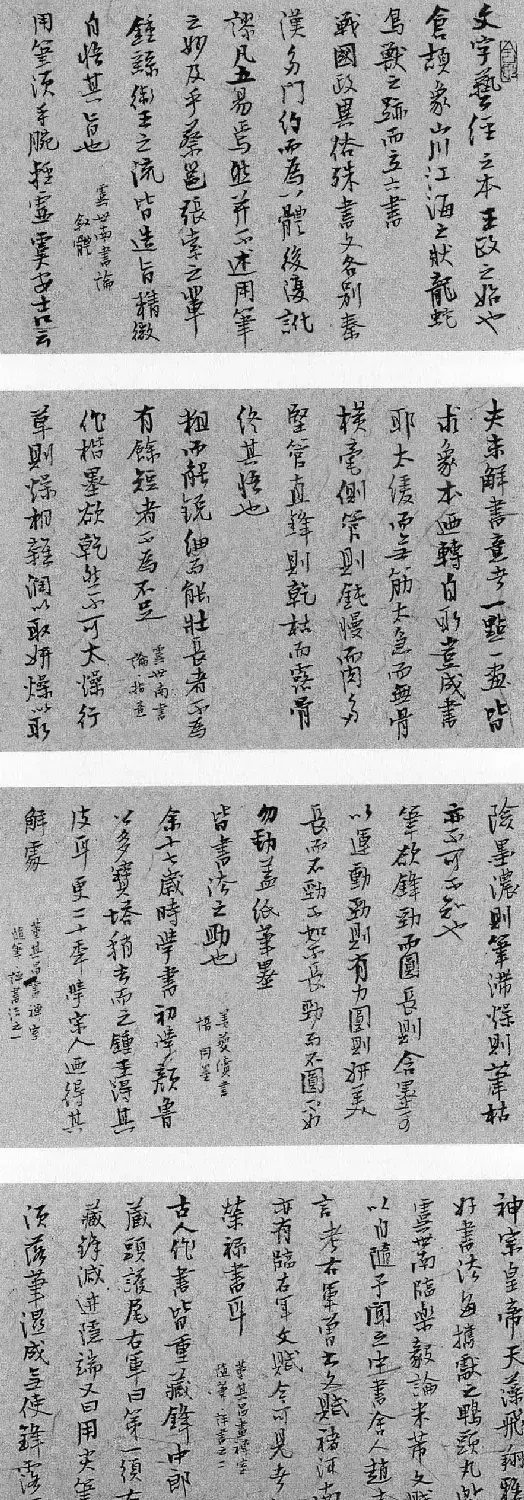 文字藝經之本王政之始也
倉頡象山川江海之狀龍蛇
鳥獸之跡而立六書
戰國政異俗殊書文各別秦
漢多門約而為八體後復訛
謬凡五易焉然并不述用筆
之妙及乎蔡邕張索之輩
鍾繇衛王之流皆造旨精微
自悟其旨也
虞世南書論
敘體
用筆須手腕輕虛虞安吉云
夫未解書意者一點一畫皆
求象本迺轉自取豈成書
耶太緩而無筋太急而無骨
橫毫側管則鈍慢而肉多
堅管直鋒則乾枯而露骨
終其悟也
粗而能銳細而能壯長者不為
有餘短者不為不足
虞世南書
論指意
作楷墨欲乾然不可太燥行
草則燥相雜潤以取妍燥以取
險墨濃則筆滯燥則筆枯
亦不可不知也
筆欲鋒勁而圓長則含墨可
以運動勁則有力圓則妍美
長而不勁不如不長勁而不圓不如
勿勁蓋紙筆墨
皆書法之助也
姜夔續書
用墨
余十七歲時學書初學顏魯
公多寶塔稍去而之鍾王得其
皮耳更二十年學宋人迺得其
解處
董其昌畫禪室
隨筆評書法之一
神宗皇帝天藻飛翔雅
好書法每攜獻之鴨頭丸
虞世南臨樂毅論米芾文賦
以自隨予聞之中書舍人趙
言考右軍曾書文賦褚河南
亦有臨右軍文賦今可見者
榮祿書耳
董其昌畫禪室
隨筆評書之二
古人作書皆重藏鋒中郎
藏頭護尾右軍曰第一須
藏鋒滅迹隱端又曰用尖筆
須落筆混成無使鋒露